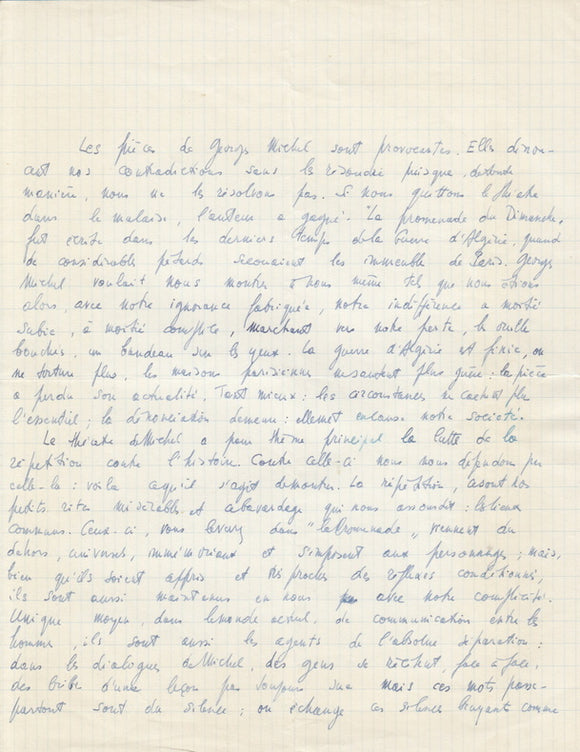 Les pièces de Georges Michel sont provocantes. Elles dénon-
cent nos contradictions sans les résoudre puisque, de toute
manière, nous ne les résolvons pas. Si nous quittons le théatre
dans le malaise, l'auteur a gagné. "La promenade du Dimanche,
fut écrite dans les derniers temps de la Guerre d'Algérie, quand
de considérables pétards secouaient les immeuble de Paris. Georges
Michel voulait nous montrer à nous même tels que nous étions
alors, avec notre ignorance fabriquée, notre indifférence à moitié
subie, à moitié complice, marchant vers notre perte, les oreilles
bouchées, un bandeau sur les yeux. La guerre d'Algérie est finie, on
ne torture plus, les maisons parisiennes ne sautent plus guère : la pièce
a perdu son actualité. Tant mieux : les circonstances ne cachent plus
l'essentiel ; la dénonciation demeure : elle met en cause notre société.
Le théatre de Michel a pour thème principal la lutte de la
répétition contre l'histoire. Contre celle-ci nous nous défendons par
celle-là : voilà ce qu'il s'agit de montrer. La répétition, ce sont nos
petits rites misérables et ce bavardage qui nous assourdit : les lieux
communs. Ceux-ci, vous le verrez dans "la Promenade", viennent du
dehors, universels, immémoriaux et s'imposent aux personnages ; mais,
bien qu'ils soient appris et très proches des réflexes conditionnés,
ils sont aussi maintenus en nous avec notre complicité.
Unique moyen, dans le monde actuel, de communication entre les
hommes, ils sont aussi les agents de l'absolue séparation :
dans les dialogues de Michel, des gens se récitent, face à face,
des bribes d'une leçon pas toujours sue mais ces mots passe-
partout sont du silence ; on échange ces silences bruyants comme